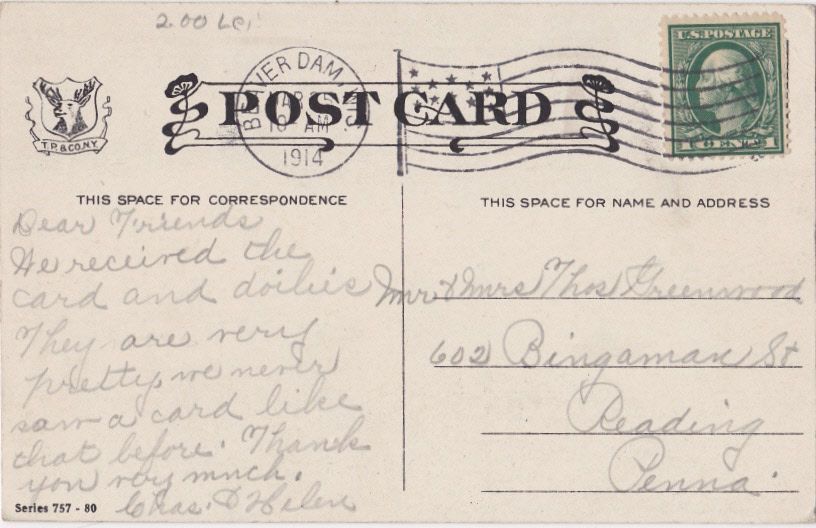 2.00
BEAVER DAM, WIS.
10 AM
1914
POST CARD
U.S. POSTAGE
T.P.& CO. N.Y.
THIS SPACE FOR CORRESPONDENCE
THIS SPACE FOR NAME AND ADDRESS
Dear Friends
We received the
card and doilies
They are very
pretty, we never
saw a card like
that before. Thank
you very much.
Chas. & Helen
Mr & Mrs Thos Greenwood
602 Bingaman St
Reading
Penna.
Series 757 - 80